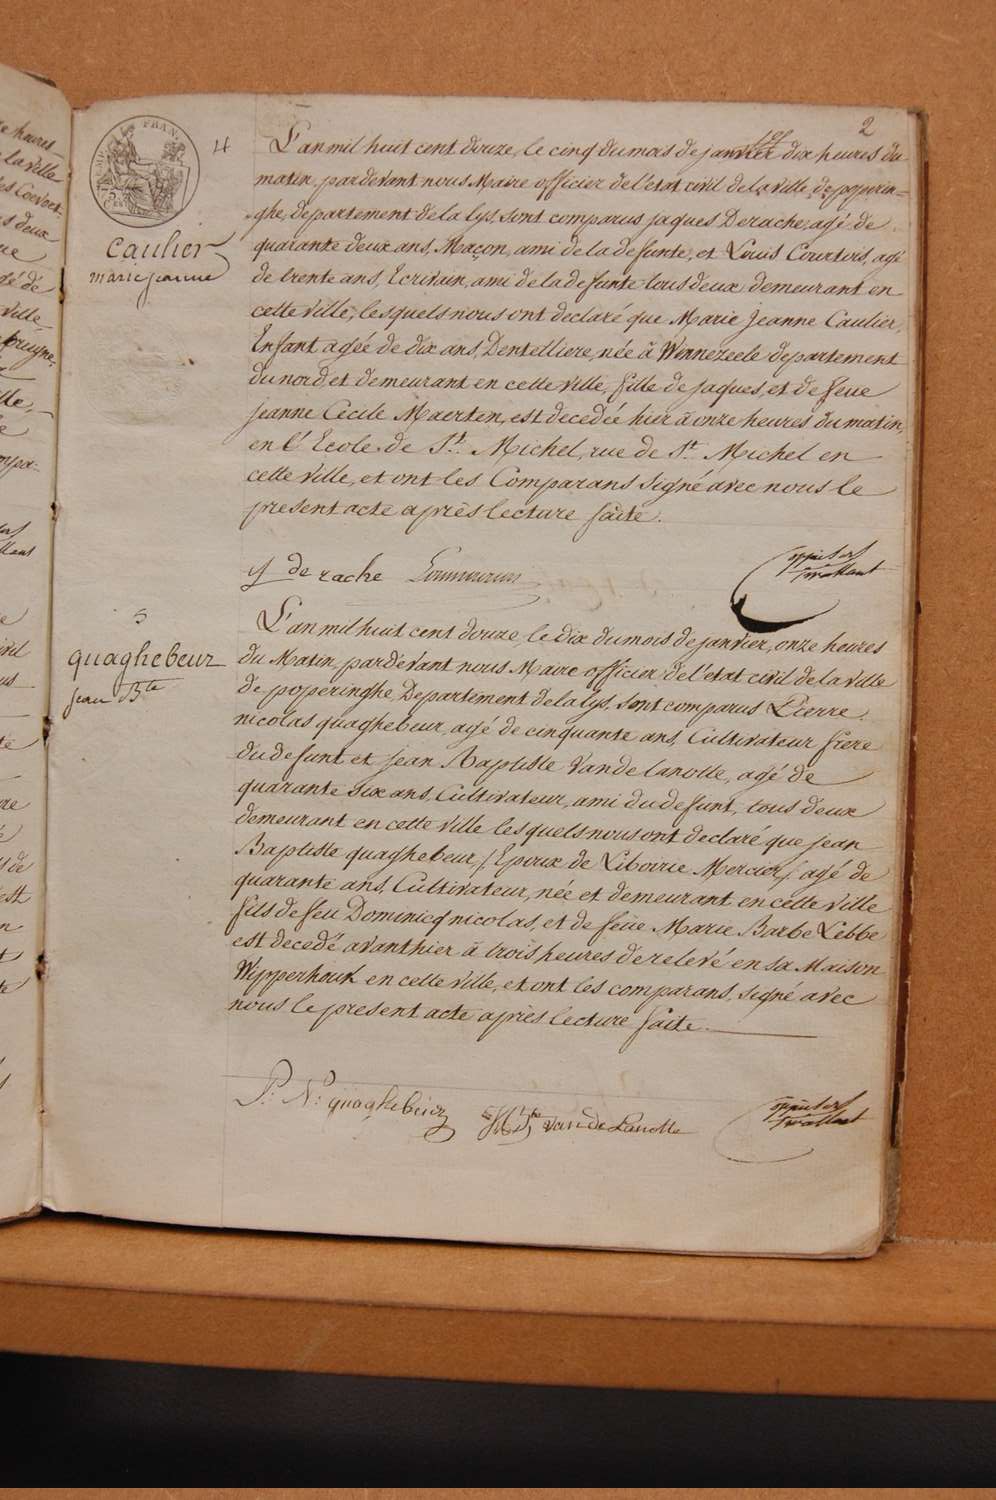 2
4
caulier
marie jeanne
L'an mil huit cent douze, le cinq du mois de janvier dix heures du
matin, pardevant nous Maire officier de l'etat civil de la ville, de poperin=
ghe, departement de la lys, sont comparus jaques Derache, agé de
quarante deux ans, Maçon, ami de la defunte, et Louis Courtois, agé
de trente ans, Ecrivain, ami de la defunte tous deux demeurant en
cette ville, lesquels nous ont declaré que Marie Jeanne Caulier,
Enfant agée de dix ans, Dentelliere, née à Winnezeele departement
du nord et demeurant en cette ville, fille de jaques, et de feue
jeanne Cecile Maerten, est decedée hier à onze heures du matin,
en l'Ecole de St. Michel, rue de St. Michel en
cette ville, et ont les Comparans signé avec nous le
present acte après lecture faite.
J de rache
5
quaghebeur
jean Bte
L'an mil huit cent douze, le dix du mois de janvier, onze heures
du Matin, pardevant nous Maire officier de l'etat civil de la ville
de poperinghe, Departement de la lys, sont comparus Pierre
nicolas quaghebeur, agé de cinquante ans, Cultivateur frere
du defunt et jean Baptiste Vandelanotte, agé de
quarante six ans, Cultivateur, ami du defunt, tous deux
demeurant en cette ville lesquels nous ont declaré que jean
Baptiste quaghebeur, /: Epoux de Liboirie Mercier /: agé de
quarante ans, Cultivateur, née et demeurant en cette ville
fils de feu Dominicq nicolas, et de feüe Marie Barbe Lebbe
est decedé avanthier à trois heures de relevé en sa Maison
Wipperhouk en cette ville, et ont les comparans, signé avec
nous le present acte après lecture faite.
P: N: quaghebeur
van de Lanotte